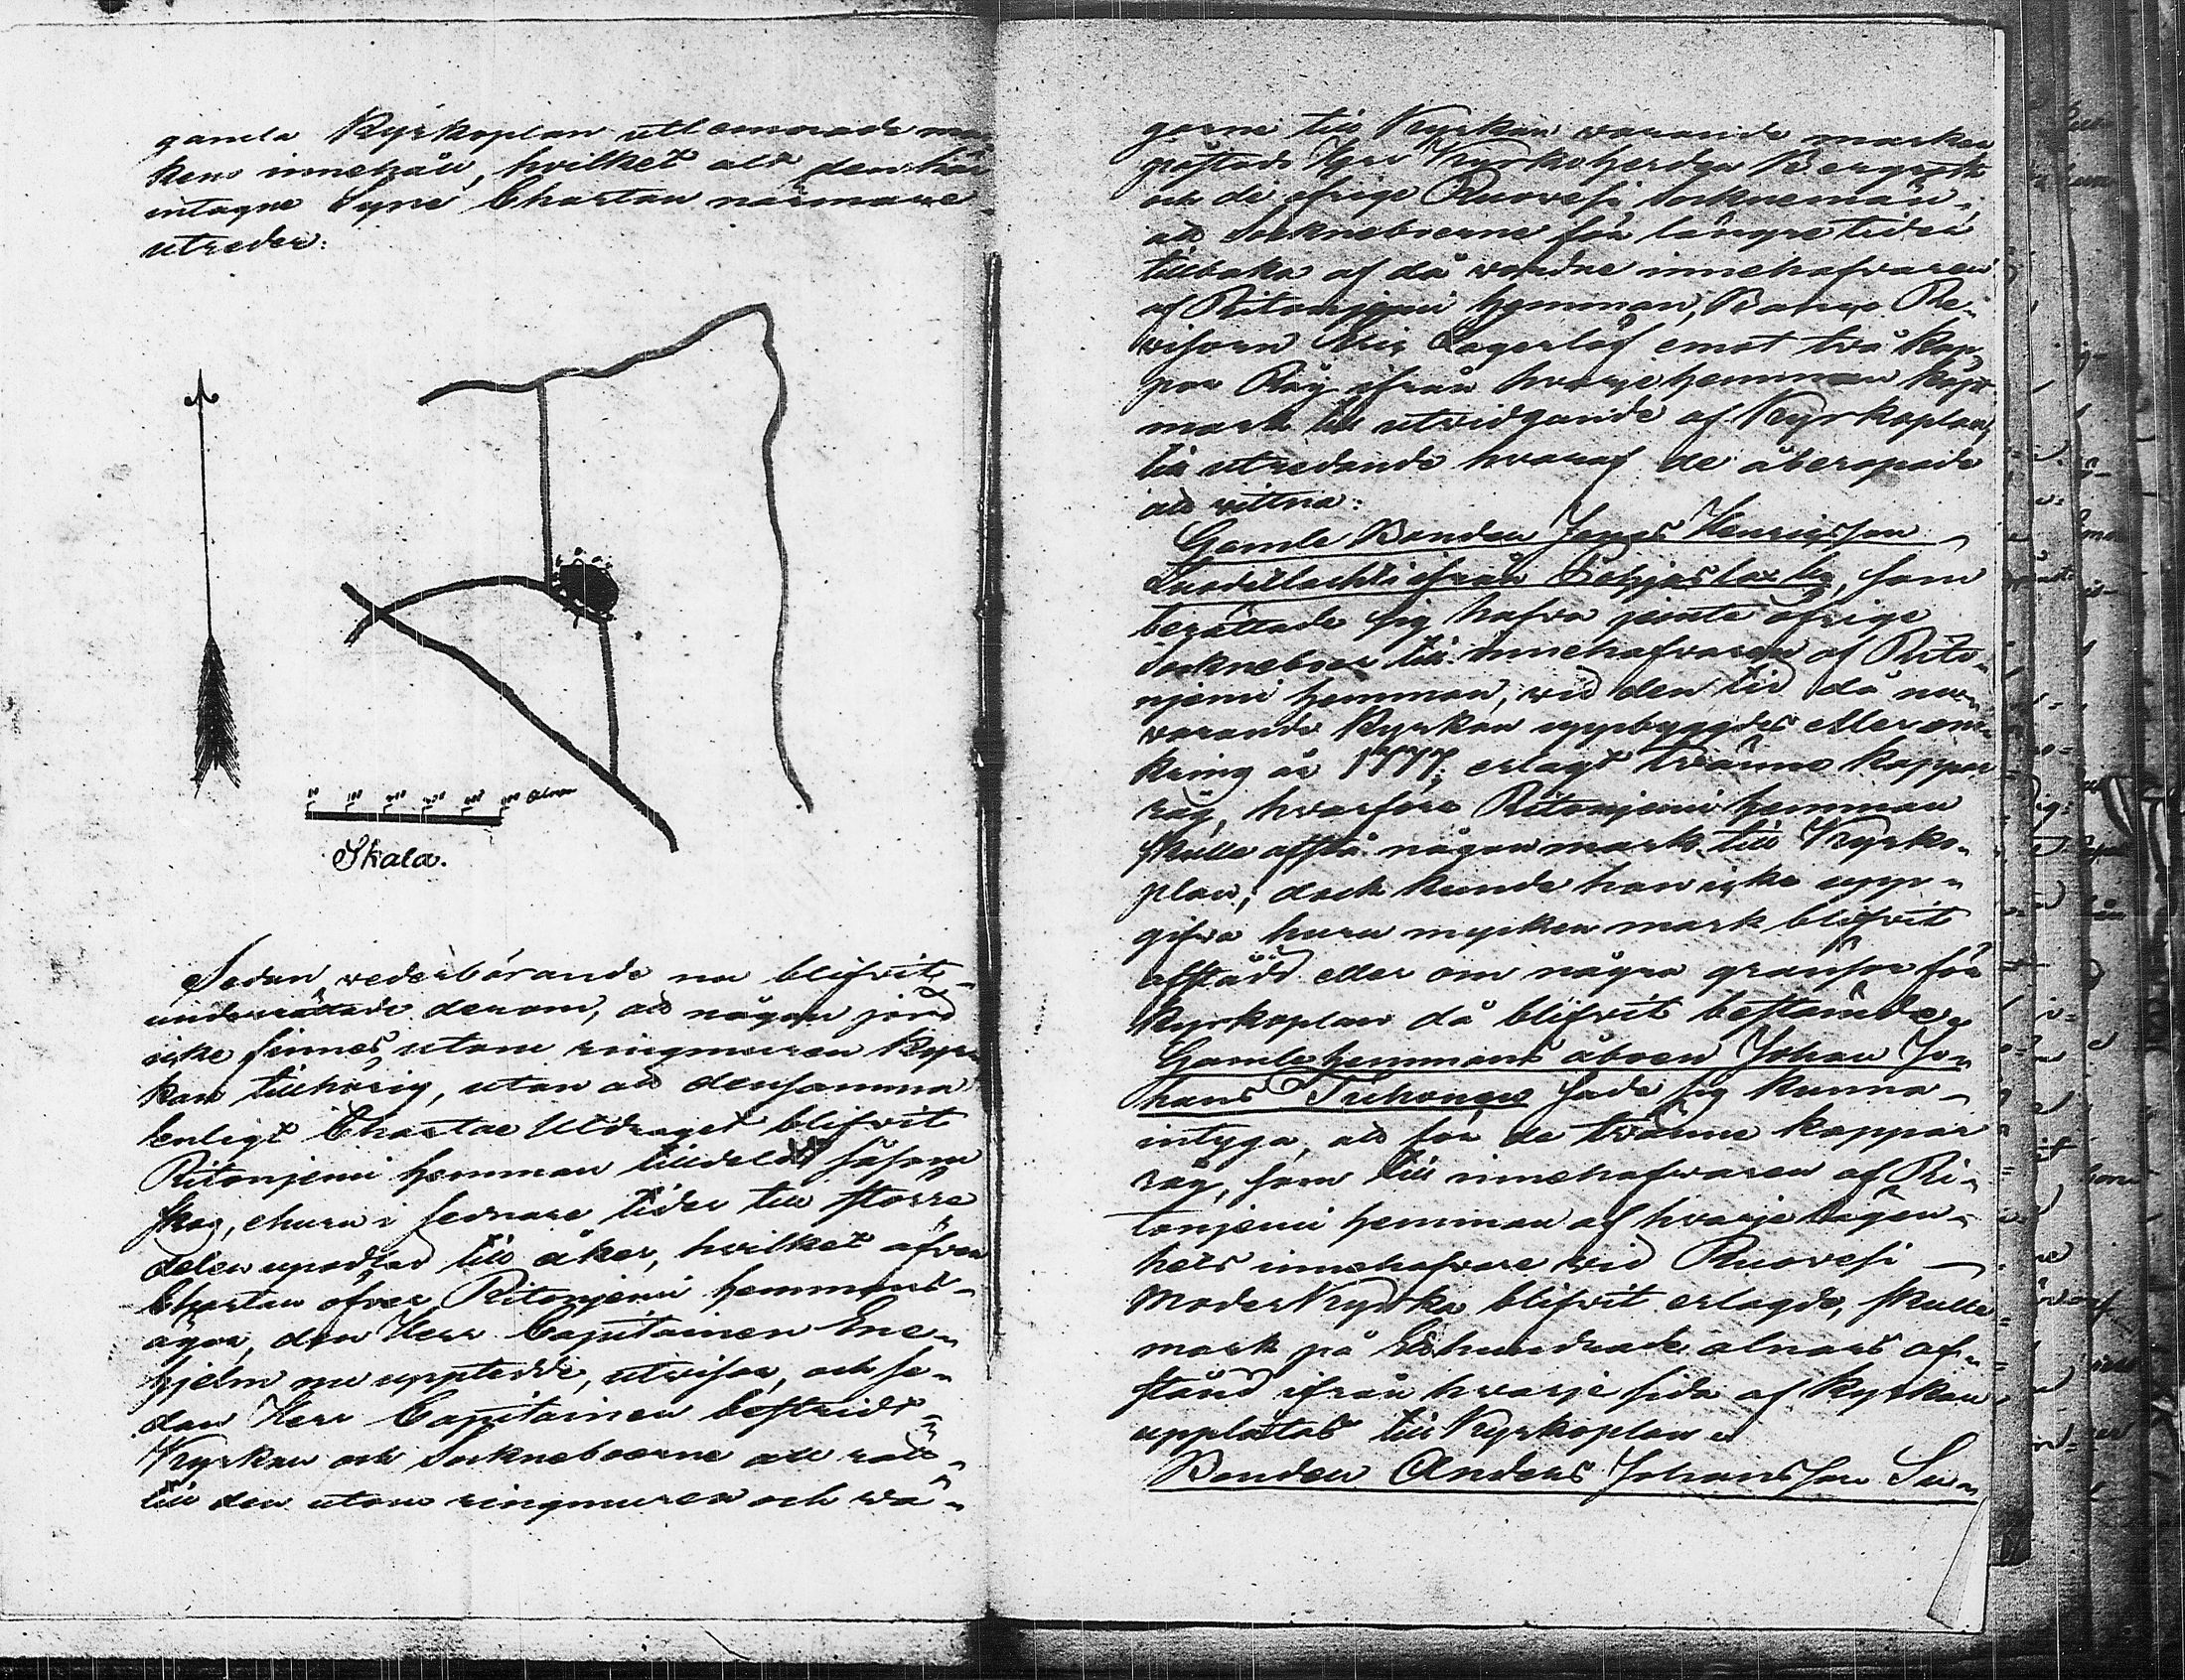 gamla Kyrkoplan utlemnade mar
kens innehåll, hvilket ald den här
intagne Syne Chartan närmare
utreder:
Alnar
Skala.
Sedan vederbörande nu blifvit
underrättade derom, att någon jord
icke finnes utom ringmuren Kyr
kan tillhörig, utan att densamma
enligt Chartae Utdraget blifvit
Ritoniemi hemman tilldelt såsom
skog, ehuru i sednare tider till större
delen upodlad till åker, hvilket äfven
Chartan öfver Ritoniemi hemmans
ägor, den Herr Capitainen Ene-
hjelm nu upptedde, utvisar, och se-
dan Herr Capitainen bestridt
Kyrkan och Sockneboerne all rätt
till den utom ringmuren och vä-
garne till Kyrkan varande marken
påstods Herr Kyrkoherden Bergroth
och de öfrige Ruovesi Socknemän,
att Sockneboerne för längre tider
tillbaka af då varande innehafvaren
af Ritoniemi hemman, Rev Re-
visorn Eric Lagerlöf emot två kap-
par Råg ifrån hvarje hemman köpt
mark till utvidgande af Kyrkoplan,
till utredande hvaraf de åberopade
att vittna:
Gamle Bonden Jonas Henricsson
Luodeslachti ifrån Pohjaslax by, som
berättade sig hafva jemte öfrige
Sockneboer till innehafvaren af Rito-
njemi hemman, vid den tid då nu-
varande Kyrkan uppbyggdes eller om-
kring år 1777, erlagt tvänne kappar
råg, hvarföre Ritonjemi hemman
skulle afstå någon mark till Kyrko-
plan; dock kunde han icke upp-
gifva huru mycken mark blifvit
afstådd eller om några gränsor för
Kyrkoplan då blifvit bestämde.
Gamle hemmans åboen Johan Jo-
hans Tuhonen sade sig kunna
intyga, att för de tvänne kappar
råg, som till innehafvaren af Ri-
tonjemi hemman af hvarje lägen-
hets innehafvare vid Ruovesi
ModerKyrka blifvit erlagde, skulle
mark på Etthundrade alnars af-
stånd ifrån hvarje sida af Kyrkan
upplåtas till Kyrkoplan.
Bonden Anders Johansson Su-